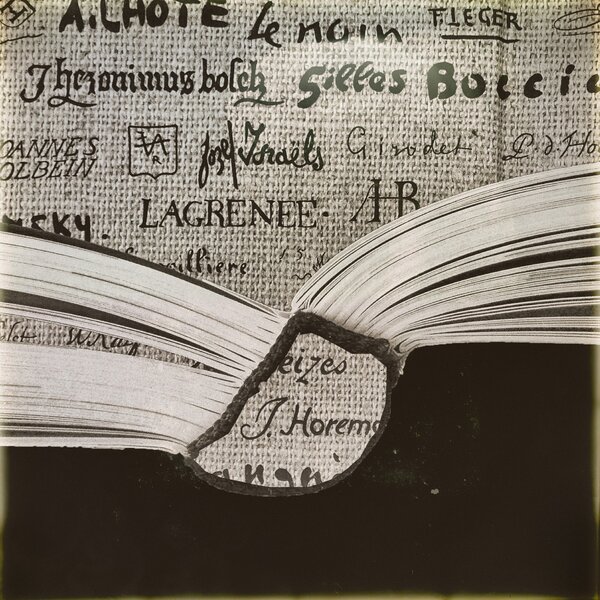 A. LHOTE Le nain F. LEGER
Jheronimus bosch Gilles Boccia
OANNES
OLBEIN
Jozef Israëls Girodet P. d. Ho
LAGRENEE. AHB
SKY.
eizes
J. Horem